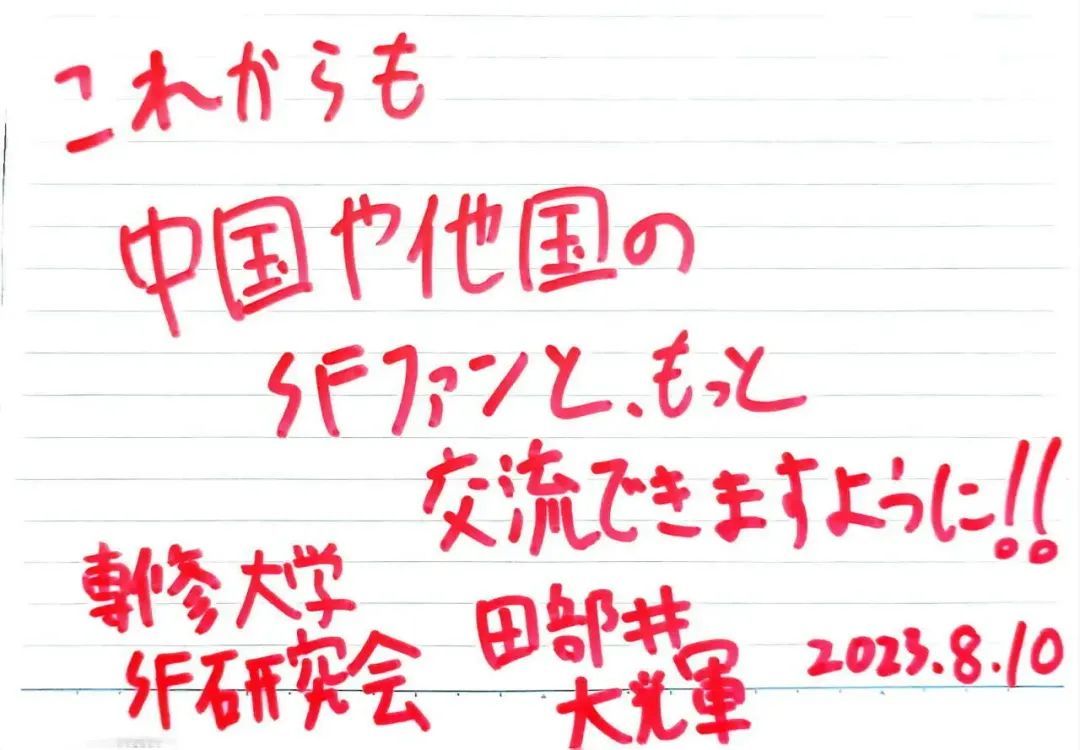 これからも
中国や他国の
SFファンと、もっと
交流できますように!!
専修大学
SF研究会
田部井
大光軍
2023.8.10